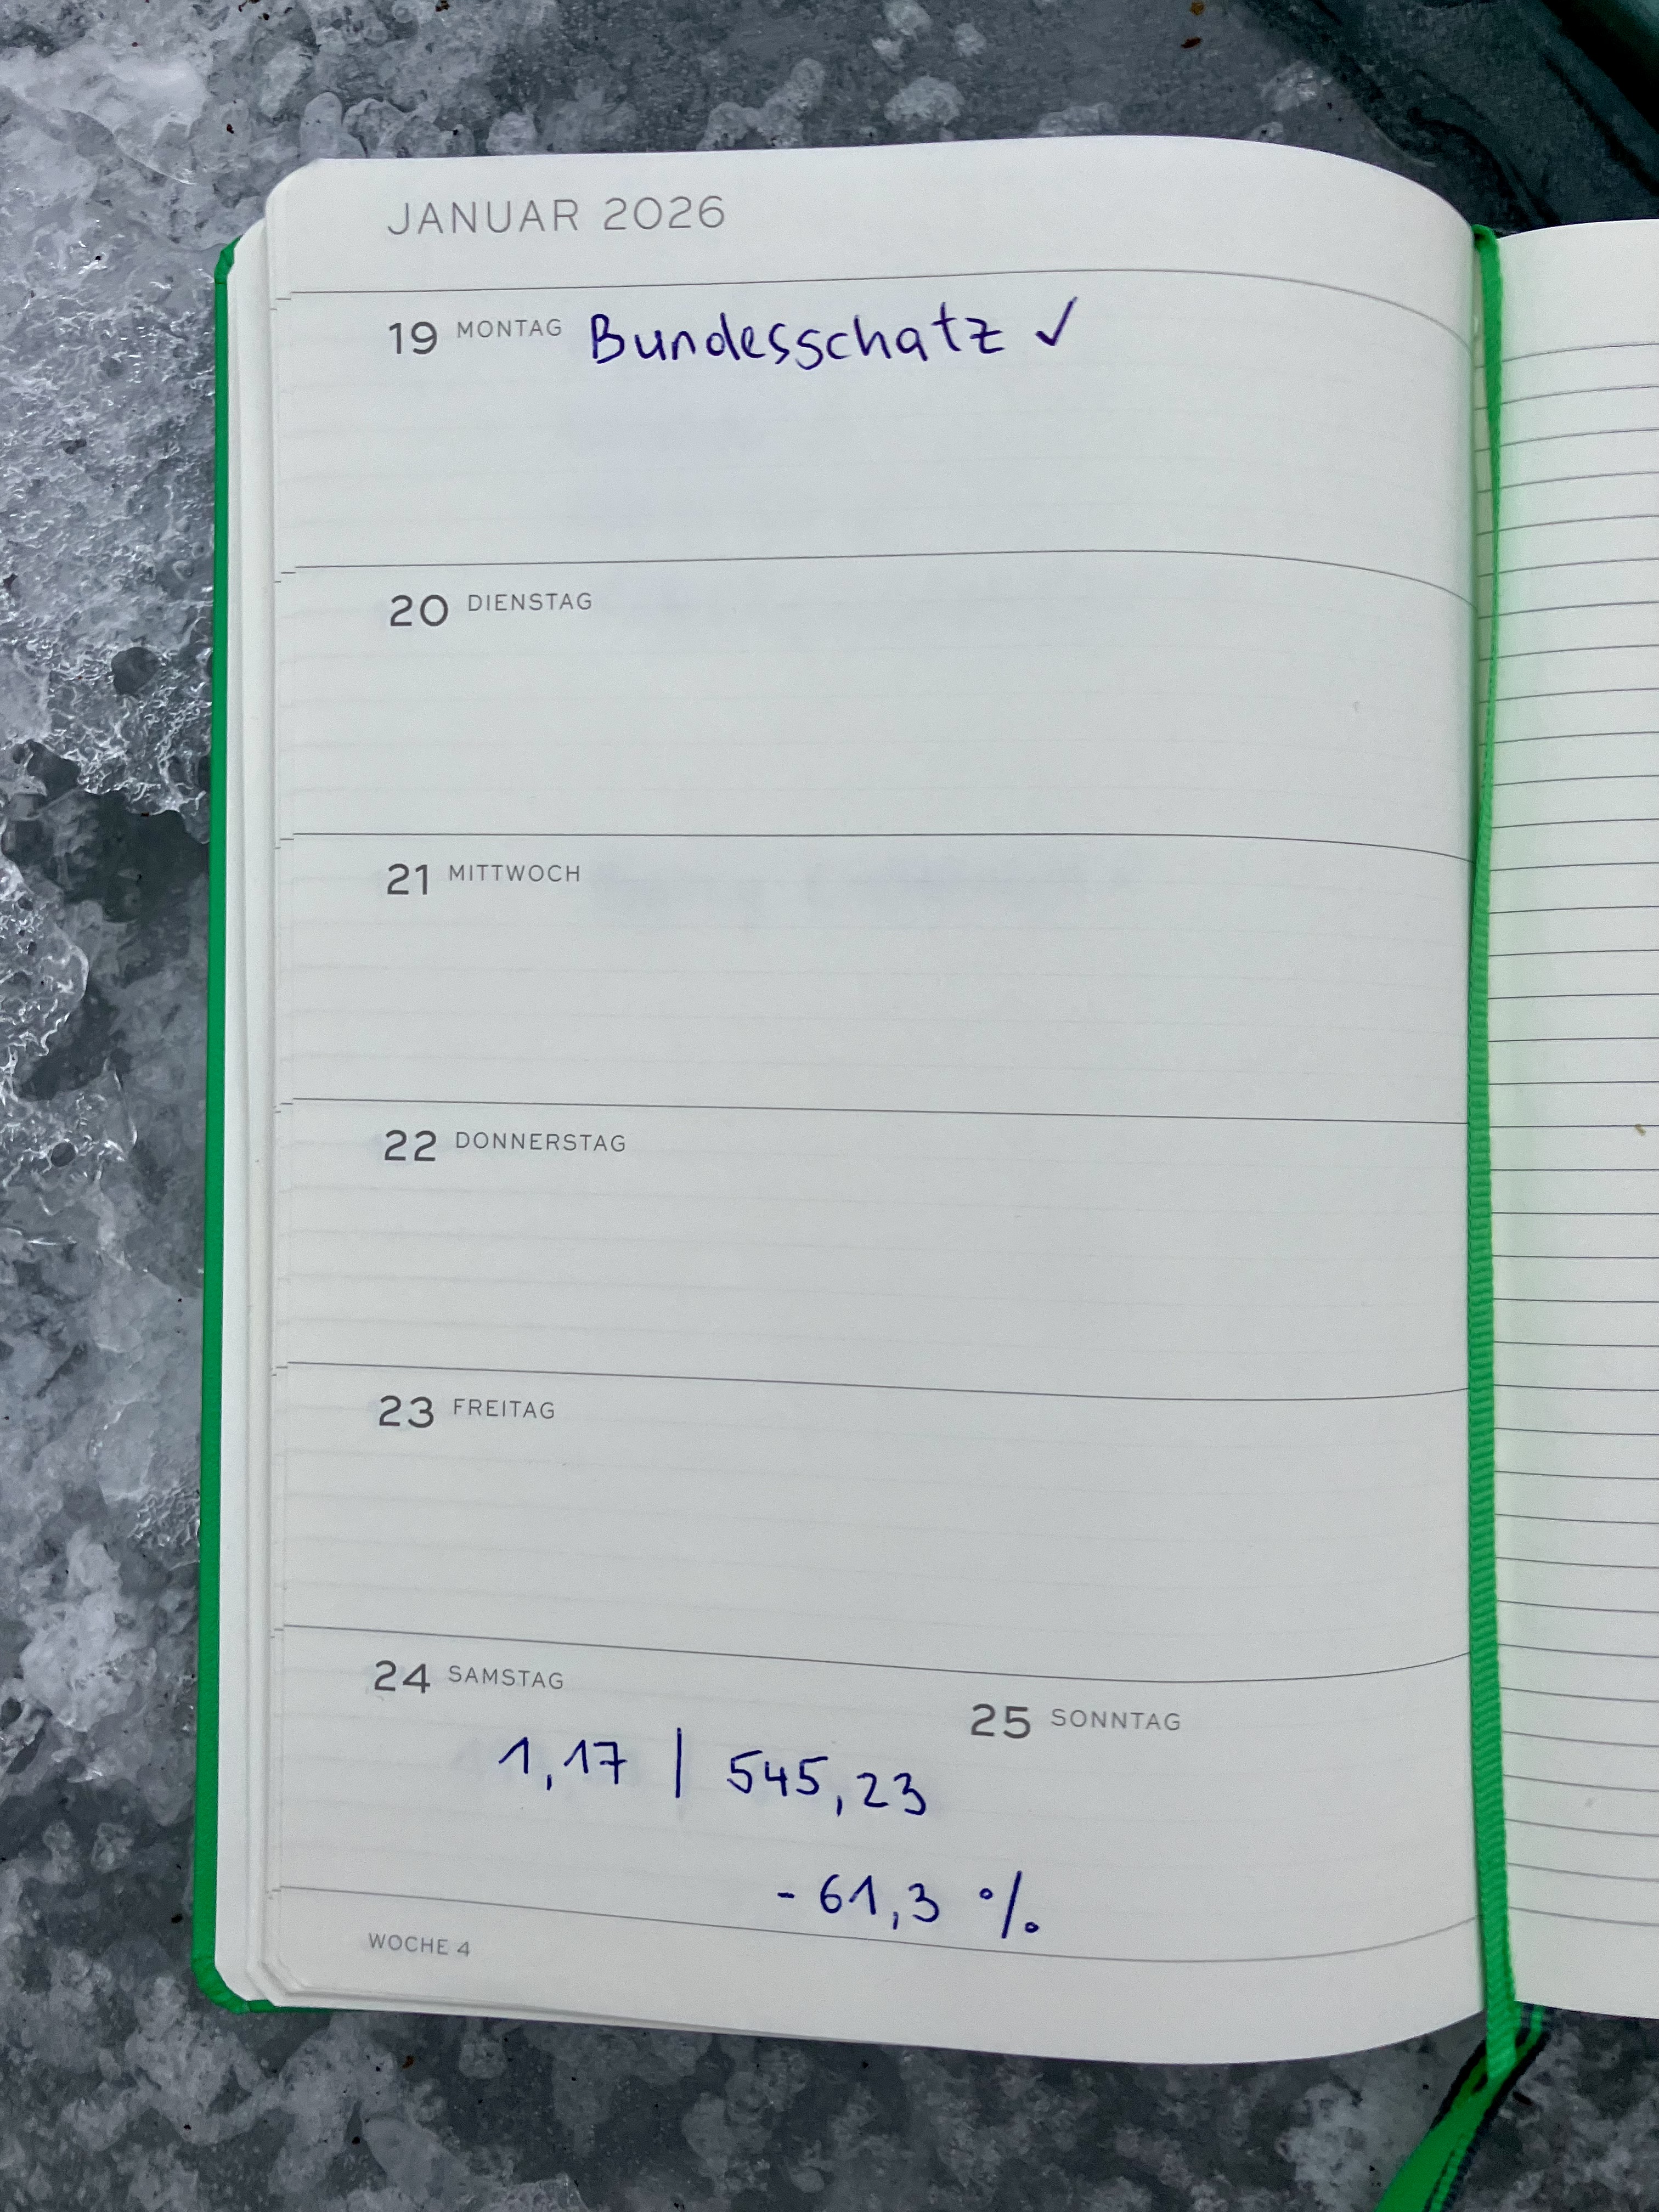 JANUAR 2026
19 MONTAG Bundesschatz ✓
20 DIENSTAG
21 MITTWOCH
22 DONNERSTAG
23 FREITAG
24 SAMSTAG
25 SONNTAG
1,17 | 545,23
- 61,3 %
WOCHE 4